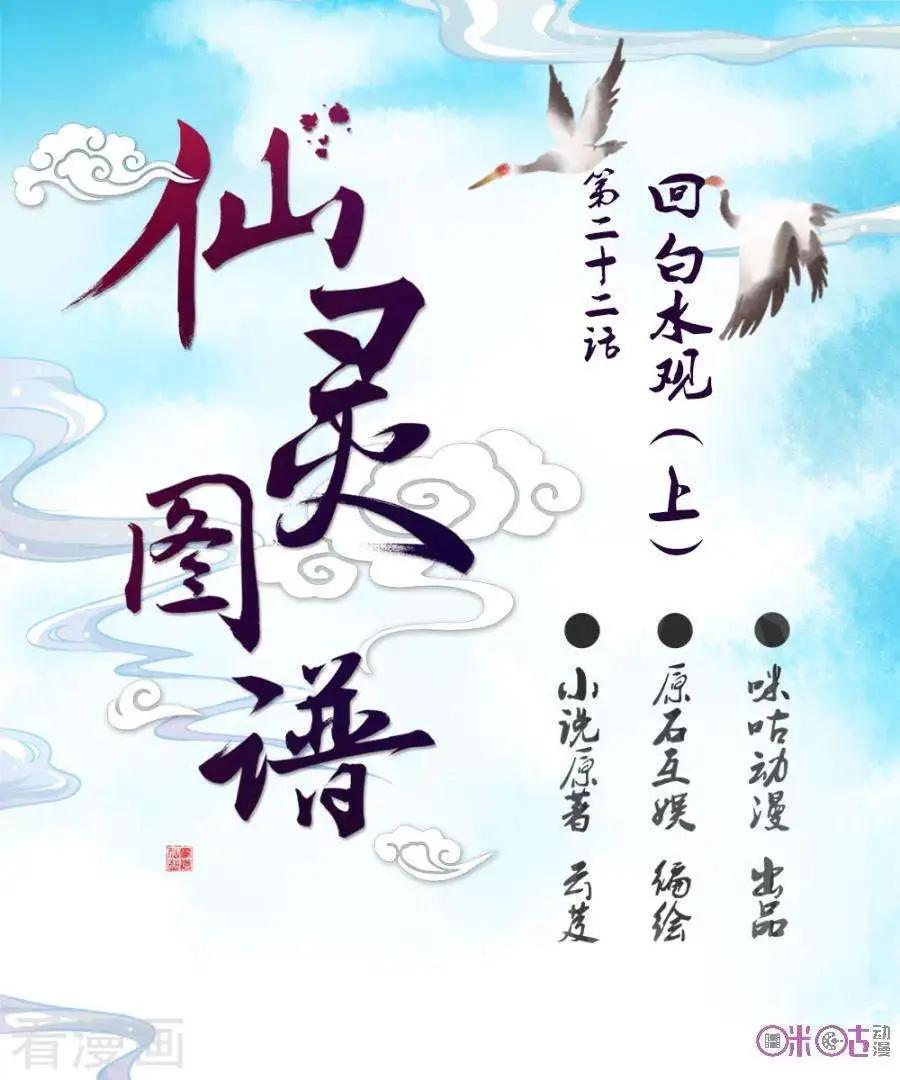 仙灵图谱
回白水观（上）
第二十二话
咪咕动漫 出品
原石互娱 编绘
小说原著 云芨
看漫画
咪咕动漫